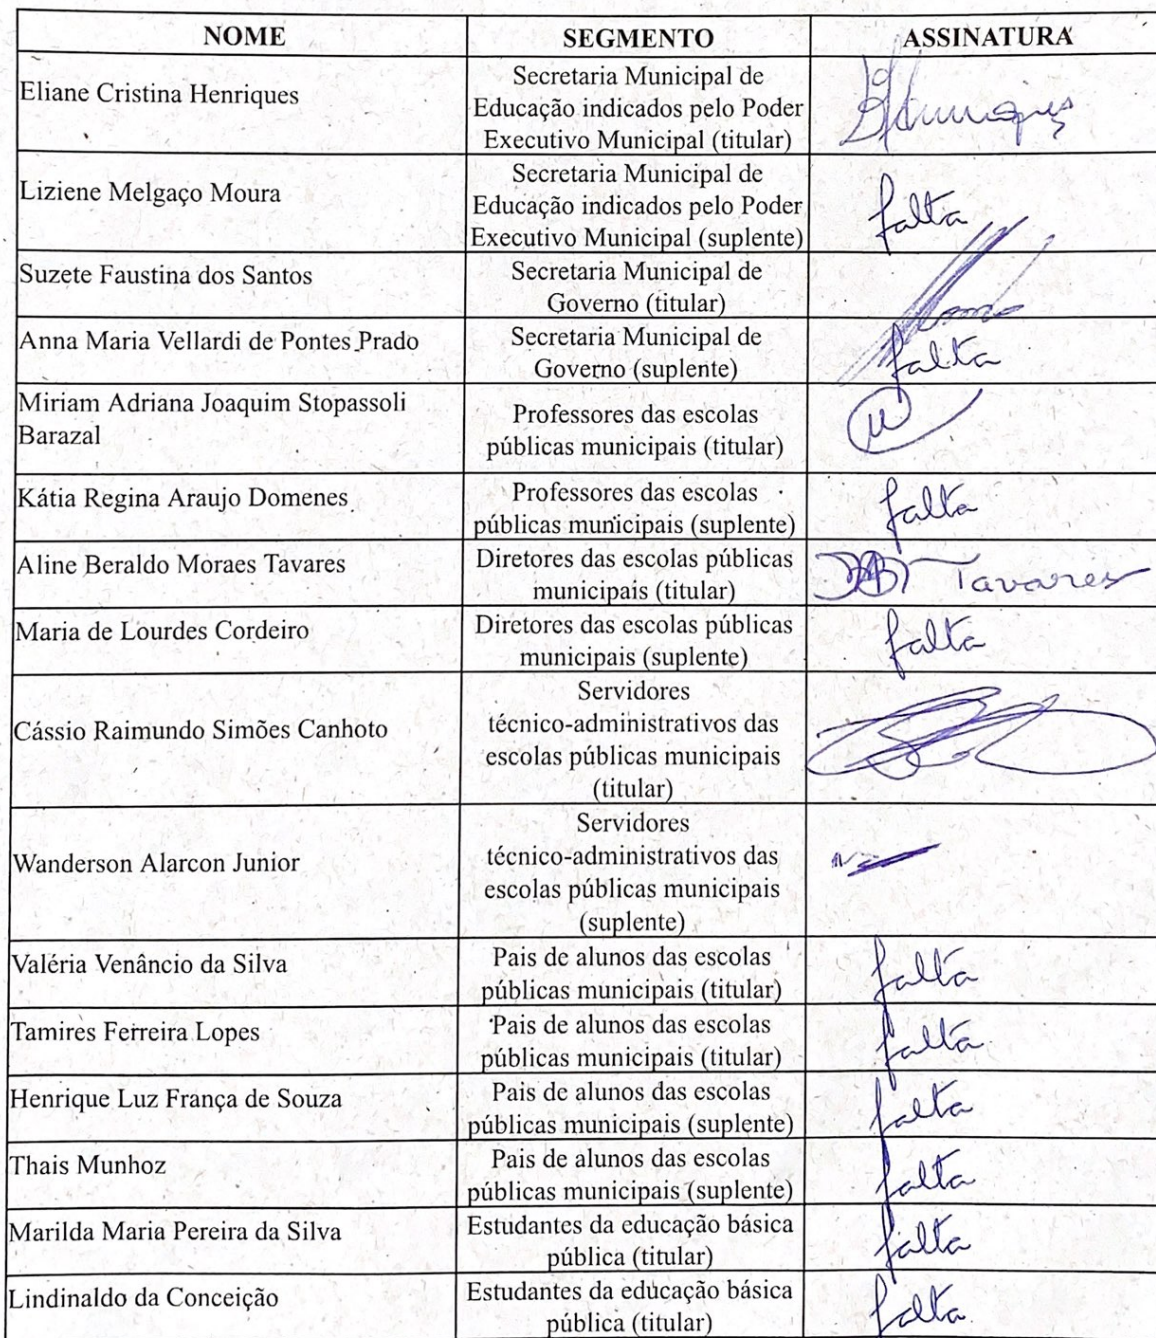 NOME SEGMENTO ASSINATURA
Eliane Cristina Henriques
Secretaria Municipal de
Educação indicados pelo Poder
Executivo Municipal (titular)
Henriques
Liziene Melgaço Moura
Secretaria Municipal de
Educação indicados pelo Poder
Executivo Municipal (suplente)
falta
Suzete Faustina dos Santos
Secretaria Municipal de
Governo (titular)
Anna Maria Vellardi de Pontes Prado
Secretaria Municipal de
Governo (suplente)
falta
Miriam Adriana Joaquim Stopassoli
Barazal
Professores das escolas
públicas municipais (titular)
Kátia Regina Araujo Domenes
Professores das escolas
públicas municipais (suplente)
falta
Aline Beraldo Moraes Tavares
Diretores das escolas públicas
municipais (titular)
Tavares
Maria de Lourdes Cordeiro
Diretores das escolas públicas
municipais (suplente)
falta
Cássio Raimundo Simões Canhoto
Servidores
técnico-administrativos das
escolas públicas municipais
(titular)
Wanderson Alarcon Junior
Servidores
técnico-administrativos das
escolas públicas municipais
(suplente)
Valéria Venâncio da Silva
Pais de alunos das escolas
públicas municipais (titular)
falta
Tamires Ferreira Lopes
Pais de alunos das escolas
públicas municipais (titular)
falta
Henrique Luz França de Souza
Pais de alunos das escolas
públicas municipais (suplente)
falta
Thais Munhoz
Pais de alunos das escolas
públicas municipais (suplente)
falta
Marilda Maria Pereira da Silva
Estudantes da educação básica
pública (titular)
falta
Lindinaldo da Conceição
Estudantes da educação básica
pública (titular)
falta